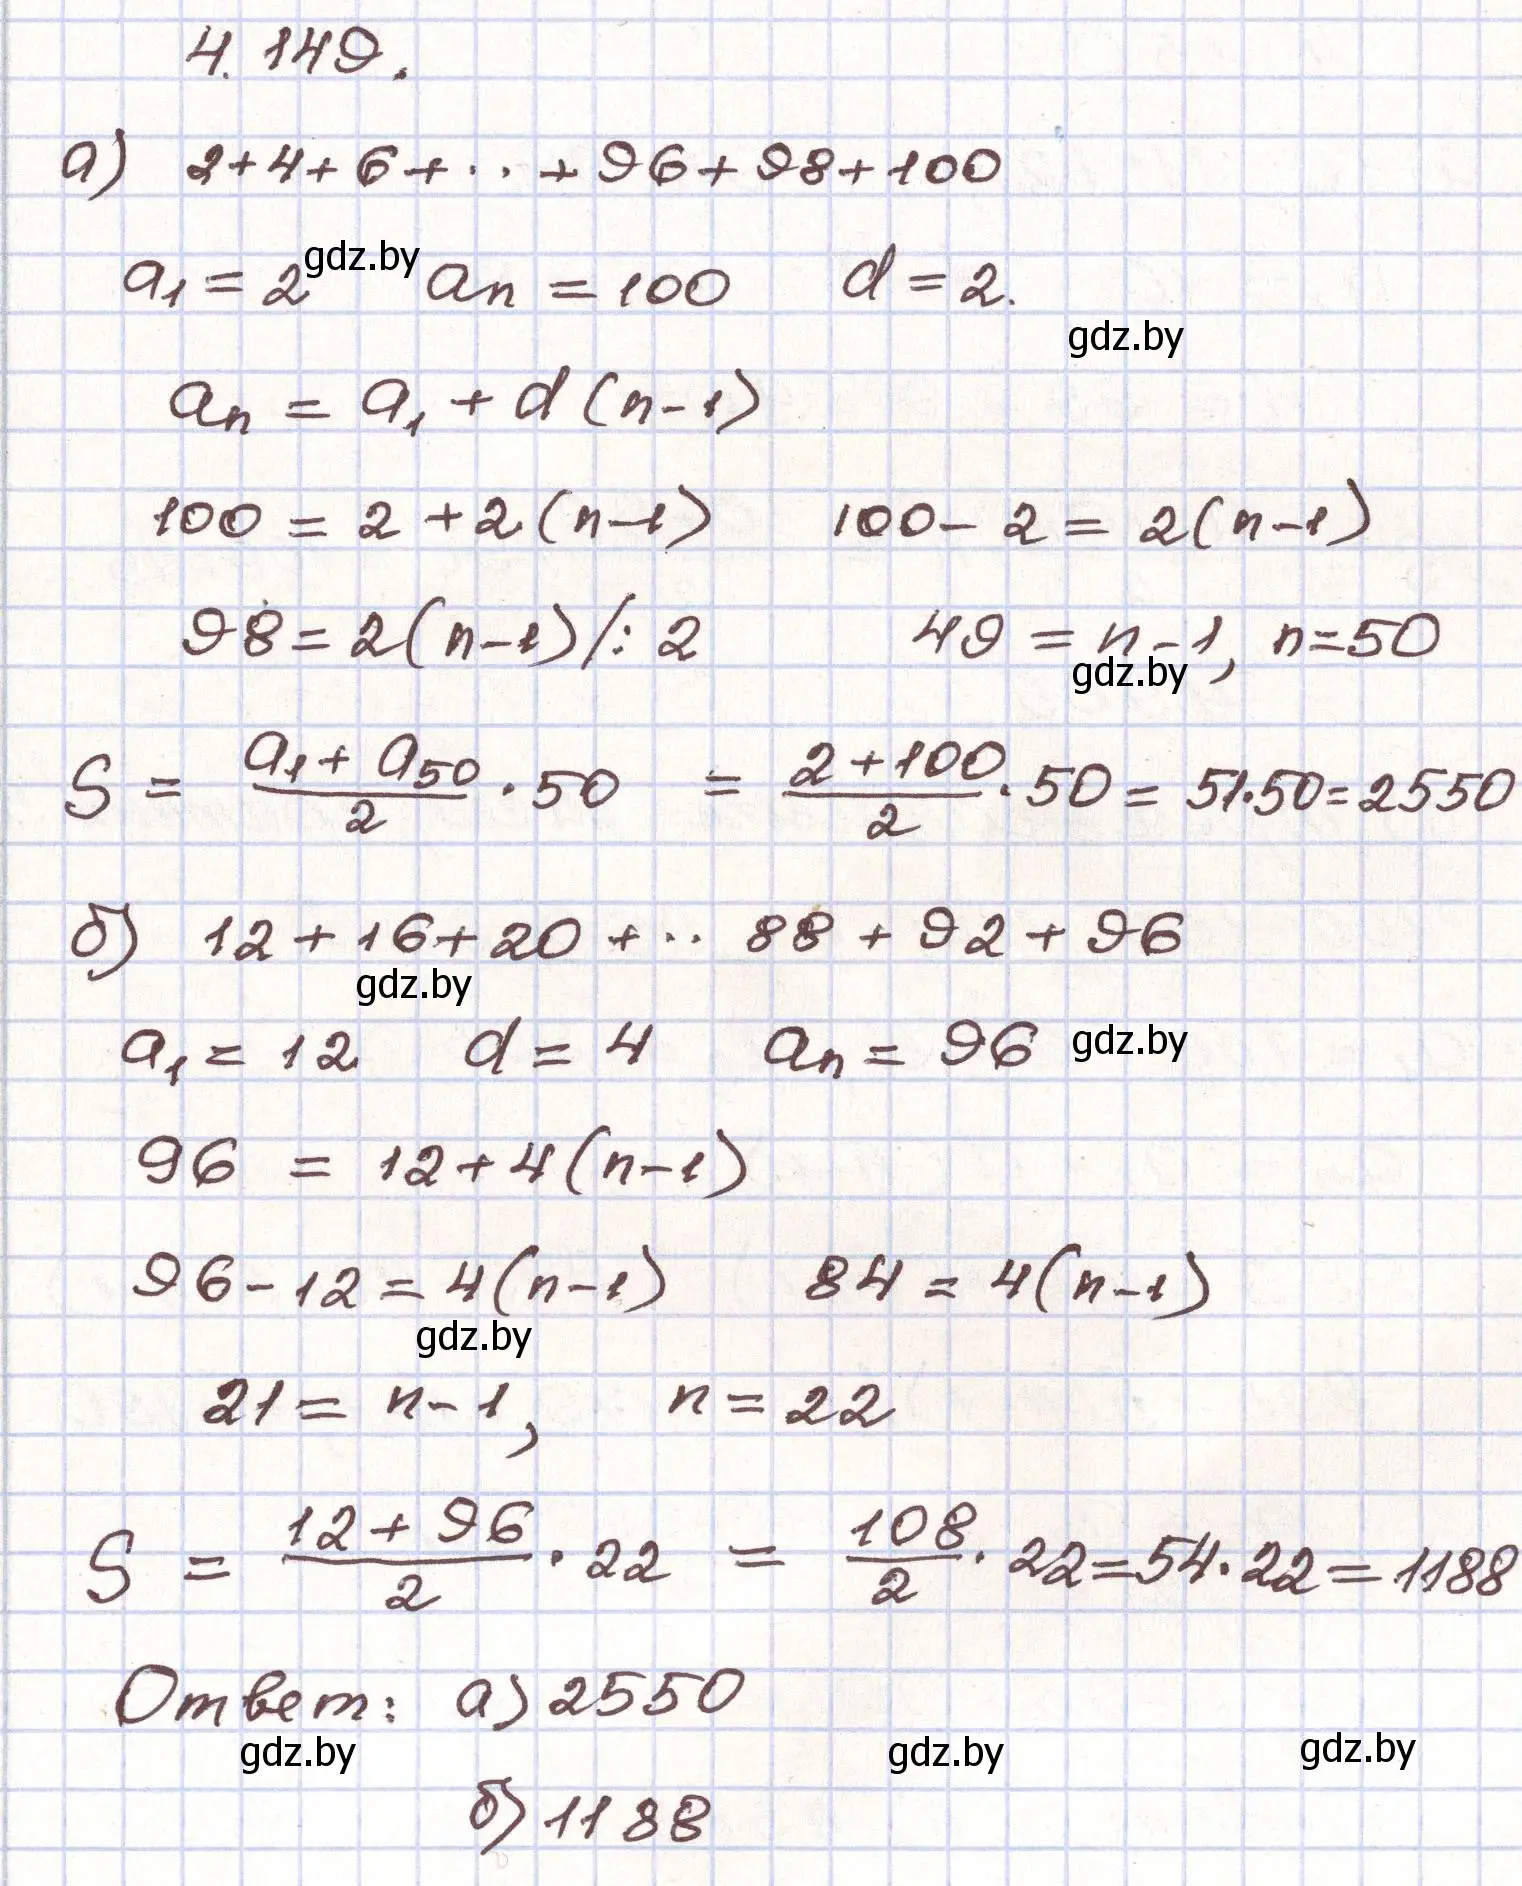 4.149.
а) 2+4+6+...+96+98+100
gdz.by
a₁=2   aₙ=100   d=2.
gdz.by
aₙ = a₁ + d(n-1)
100 = 2 + 2(n-1)   100-2=2(n-1)
98=2(n-1) /:2   49 = n-1, n=50
gdz.by
S = (a₁+a₅₀)/2 · 50 = (2+100)/2 · 50 = 51·50=2550
б) 12+16+20+.. 88+92+96
gdz.by
a₁=12   d=4   aₙ=96
gdz.by
96 = 12+4(n-1)
96-12=4(n-1)   84=4(n-1)
gdz.by
21=n-1,   n=22
S = (12+96)/2 · 22 = 108/2 · 22=54·22=1188
Ответ: а) 2550
gdz.by gdz.by gdz.by
б) 1188